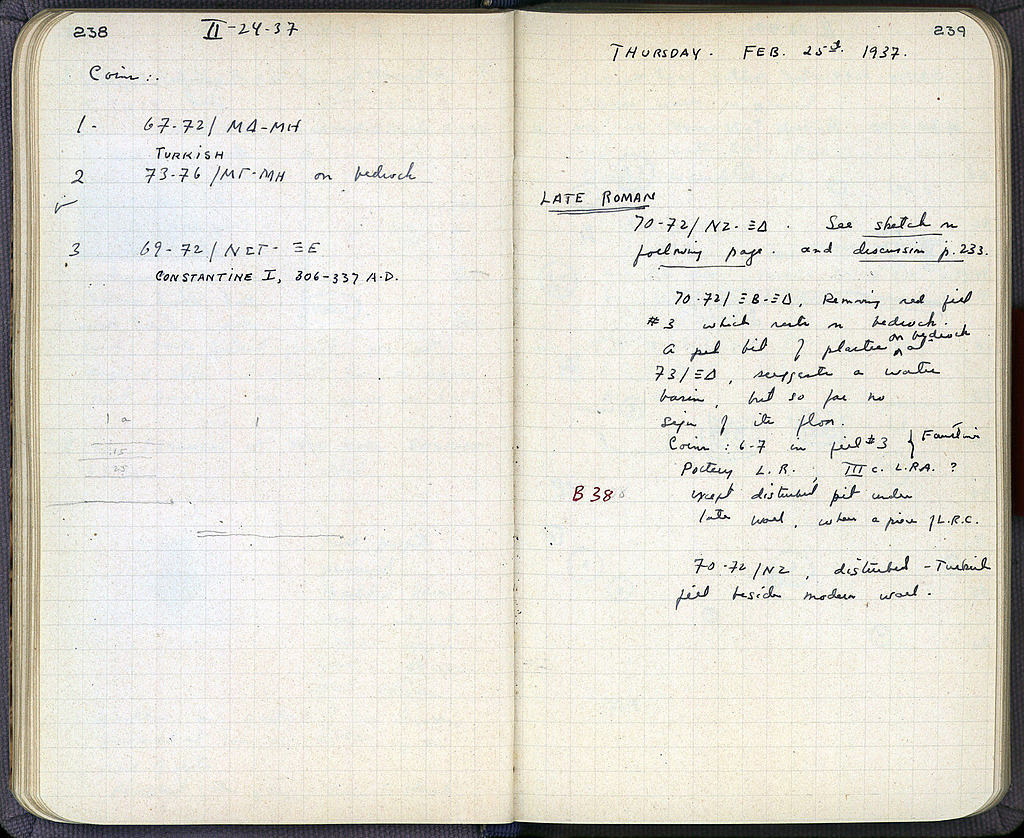 238
II-24-37
Coins:.
1- 67-72/ ΜΔ-ΜΗ
TURKISH
2 73-76 /ΜΓ-ΜΗ on bedrock
3 69-72/ ΝΣΤ-ΞΕ
CONSTANTINE I, 306-337 A.D.
1a 1
15
25
239
THURSDAY. FEB. 25st. 1937.
LATE ROMAN
70-72/ ΝΖ-ΞΔ. See sketch on
following page. and discussion p.233.
70-72/ ΞΒ-ΞΔ, Removing red fill
#3 which rests on bedrock.
A bit of plaster on bedrock at
73/ΞΔ, suggests a water
basin, but so far no
sign of its floor.
Coins: 6-7 in fill #3 } Faustina
Pottery L.R. III c. L.RA. ?
B 38 except disturbed pit under
late wall, where a piece of L.R.C.
70-72/ΝΖ, disturbed - Turkish
fill beside modern wall.